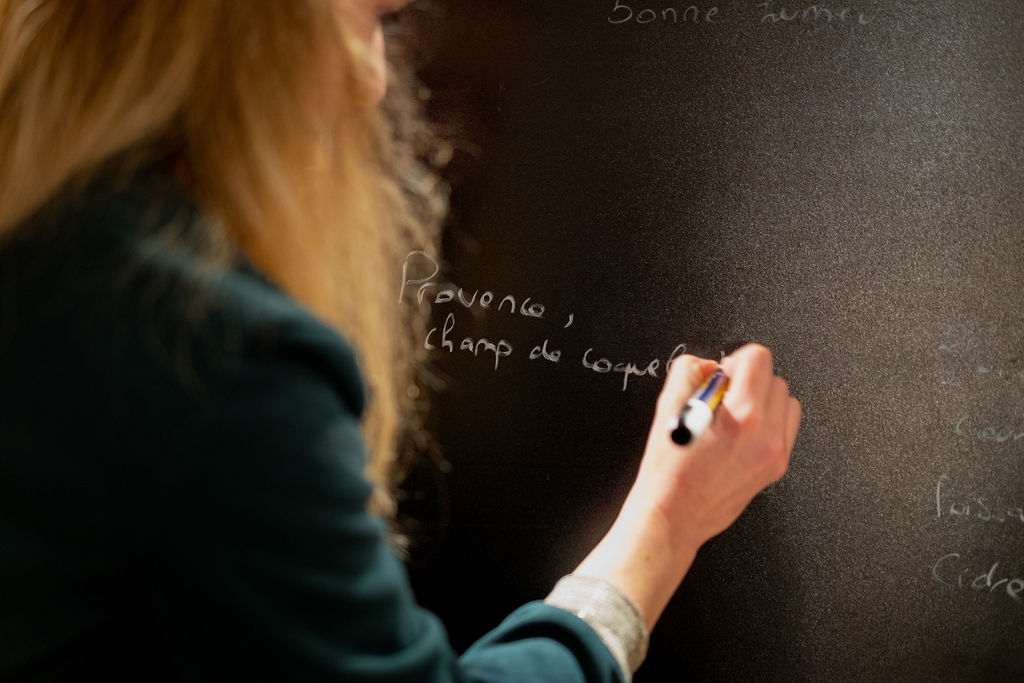 bonne humeur
Provence,
champ de coquel
Cidre